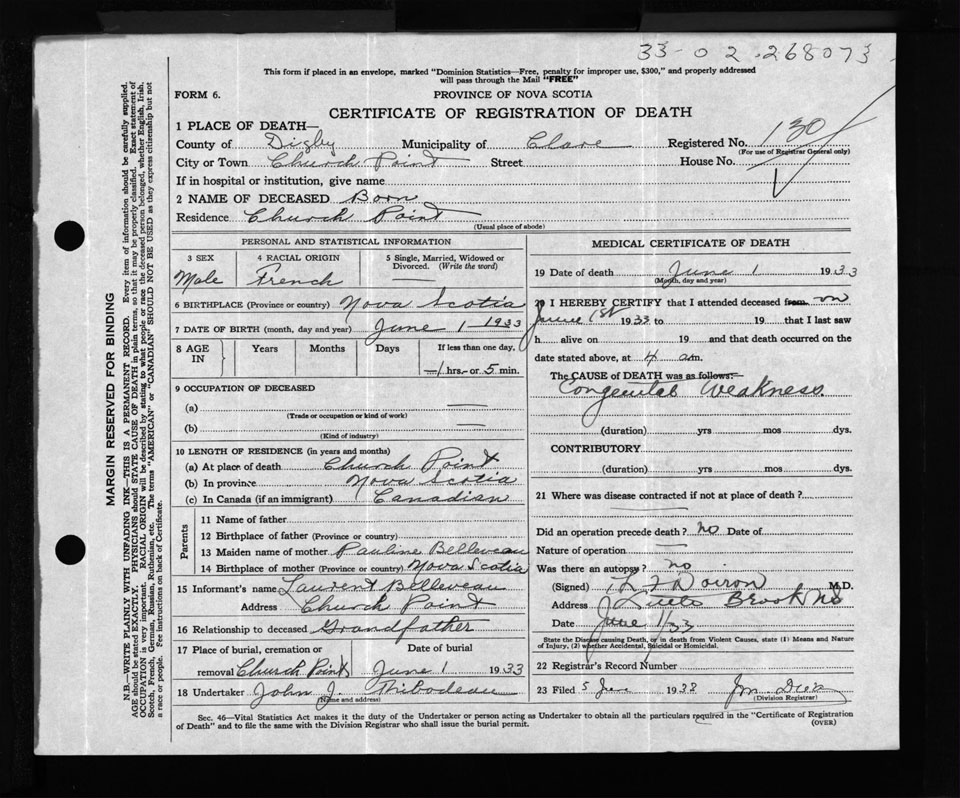 33-02-268073
This form if placed in an envelope, marked "Dominion Statistics—Free, penalty for improper use, $300," and properly addressed
will pass through the Mail "FREE"
FORM 6.
PROVINCE OF NOVA SCOTIA
CERTIFICATE OF REGISTRATION OF DEATH
1 PLACE OF DEATH—
County of Digby Municipality of Clare Registered No. 130
(For use of Registrar General only)
City or Town Church Point Street House No.
If in hospital or institution, give name
2 NAME OF DECEASED Born
Residence Church Point
(Usual place of abode)
PERSONAL AND STATISTICAL INFORMATION
3 SEX 4 RACIAL ORIGIN 5 Single, Married, Widowed or
Divorced. (Write the word)
Male French
6 BIRTHPLACE (Province or country) Nova Scotia
7 DATE OF BIRTH (month, day and year) June 1 - 1933
8 AGE IN Years Months Days If less than one day,
—/ hrs. or 5 min.
9 OCCUPATION OF DECEASED
(a) —
(Trade or occupation or kind of work)
(b) —
(Kind of industry)
10 LENGTH OF RESIDENCE (in years and months)
(a) At place of death Church Point
(b) In province Nova Scotia
(c) In Canada (if an immigrant) Canadian
Parents
11 Name of father
12 Birthplace of father (Province or country)
13 Maiden name of mother Pauline Belleveau
14 Birthplace of mother (Province or country) Nova Scotia
15 Informant's name Laurent Belleveau
Address Church Point
16 Relationship to deceased Grandfather
17 Place of burial, cremation or Date of burial
removal Church Point June 1 1933
18 Undertaker John J. Thibodeau
(Name and address)
MEDICAL CERTIFICATE OF DEATH
19 Date of death June 1 1933
(Month, day and year)
20 I HEREBY CERTIFY that I attended deceased from on
June 1st 1933 to 19 that I last saw
h alive on 19 and that death occurred on the
date stated above, at 4 am.
The CAUSE OF DEATH was as follows:—
Congenital Weakness.
(duration) yrs mos dys.
CONTRIBUTORY
(duration) yrs mos dys.
21 Where was disease contracted if not at place of death?
Did an operation precede death? no Date of
Nature of operation —
Was there an autopsy? no
(Signed) Doiron M.D.
Address Little Brook NS
Date June 1/33
State the Disease causing Death, or in death from Violent Causes, state (1) Means and Nature
of Injury, (2) whether Accidental, Suicidal or Homicidal.
22 Registrar's Record Number
23 Filed 5 June 1933
(Division Registrar)
Sec. 46—Vital Statistics Act makes it the duty of the Undertaker or person acting as Undertaker to obtain all the particulars required in the "Certificate of Registration
of Death" and to file the same with the Division Registrar who shall issue the burial permit.
(OVER)
MARGIN RESERVED FOR BINDING
N.B.—WRITE PLAINLY WITH UNFADING INK—THIS IS A PERMANENT RECORD. Every item of information should be carefully supplied.
AGE should be stated EXACTLY. PHYSICIANS should STATE CAUSE OF DEATH in plain terms, so that it may be properly classified. Exact statement of
OCCUPATION is very important. RACIAL ORIGIN will be described by stating to what people or race the deceased person belonged, whether English, Irish,
Scotch, French, German, Russian, Ruthenian, etc. The terms "AMERICAN" or "CANADIAN" SHOULD NOT BE USED as they express citizenship but not
a race or people. Fee instructions on back of Certificate.